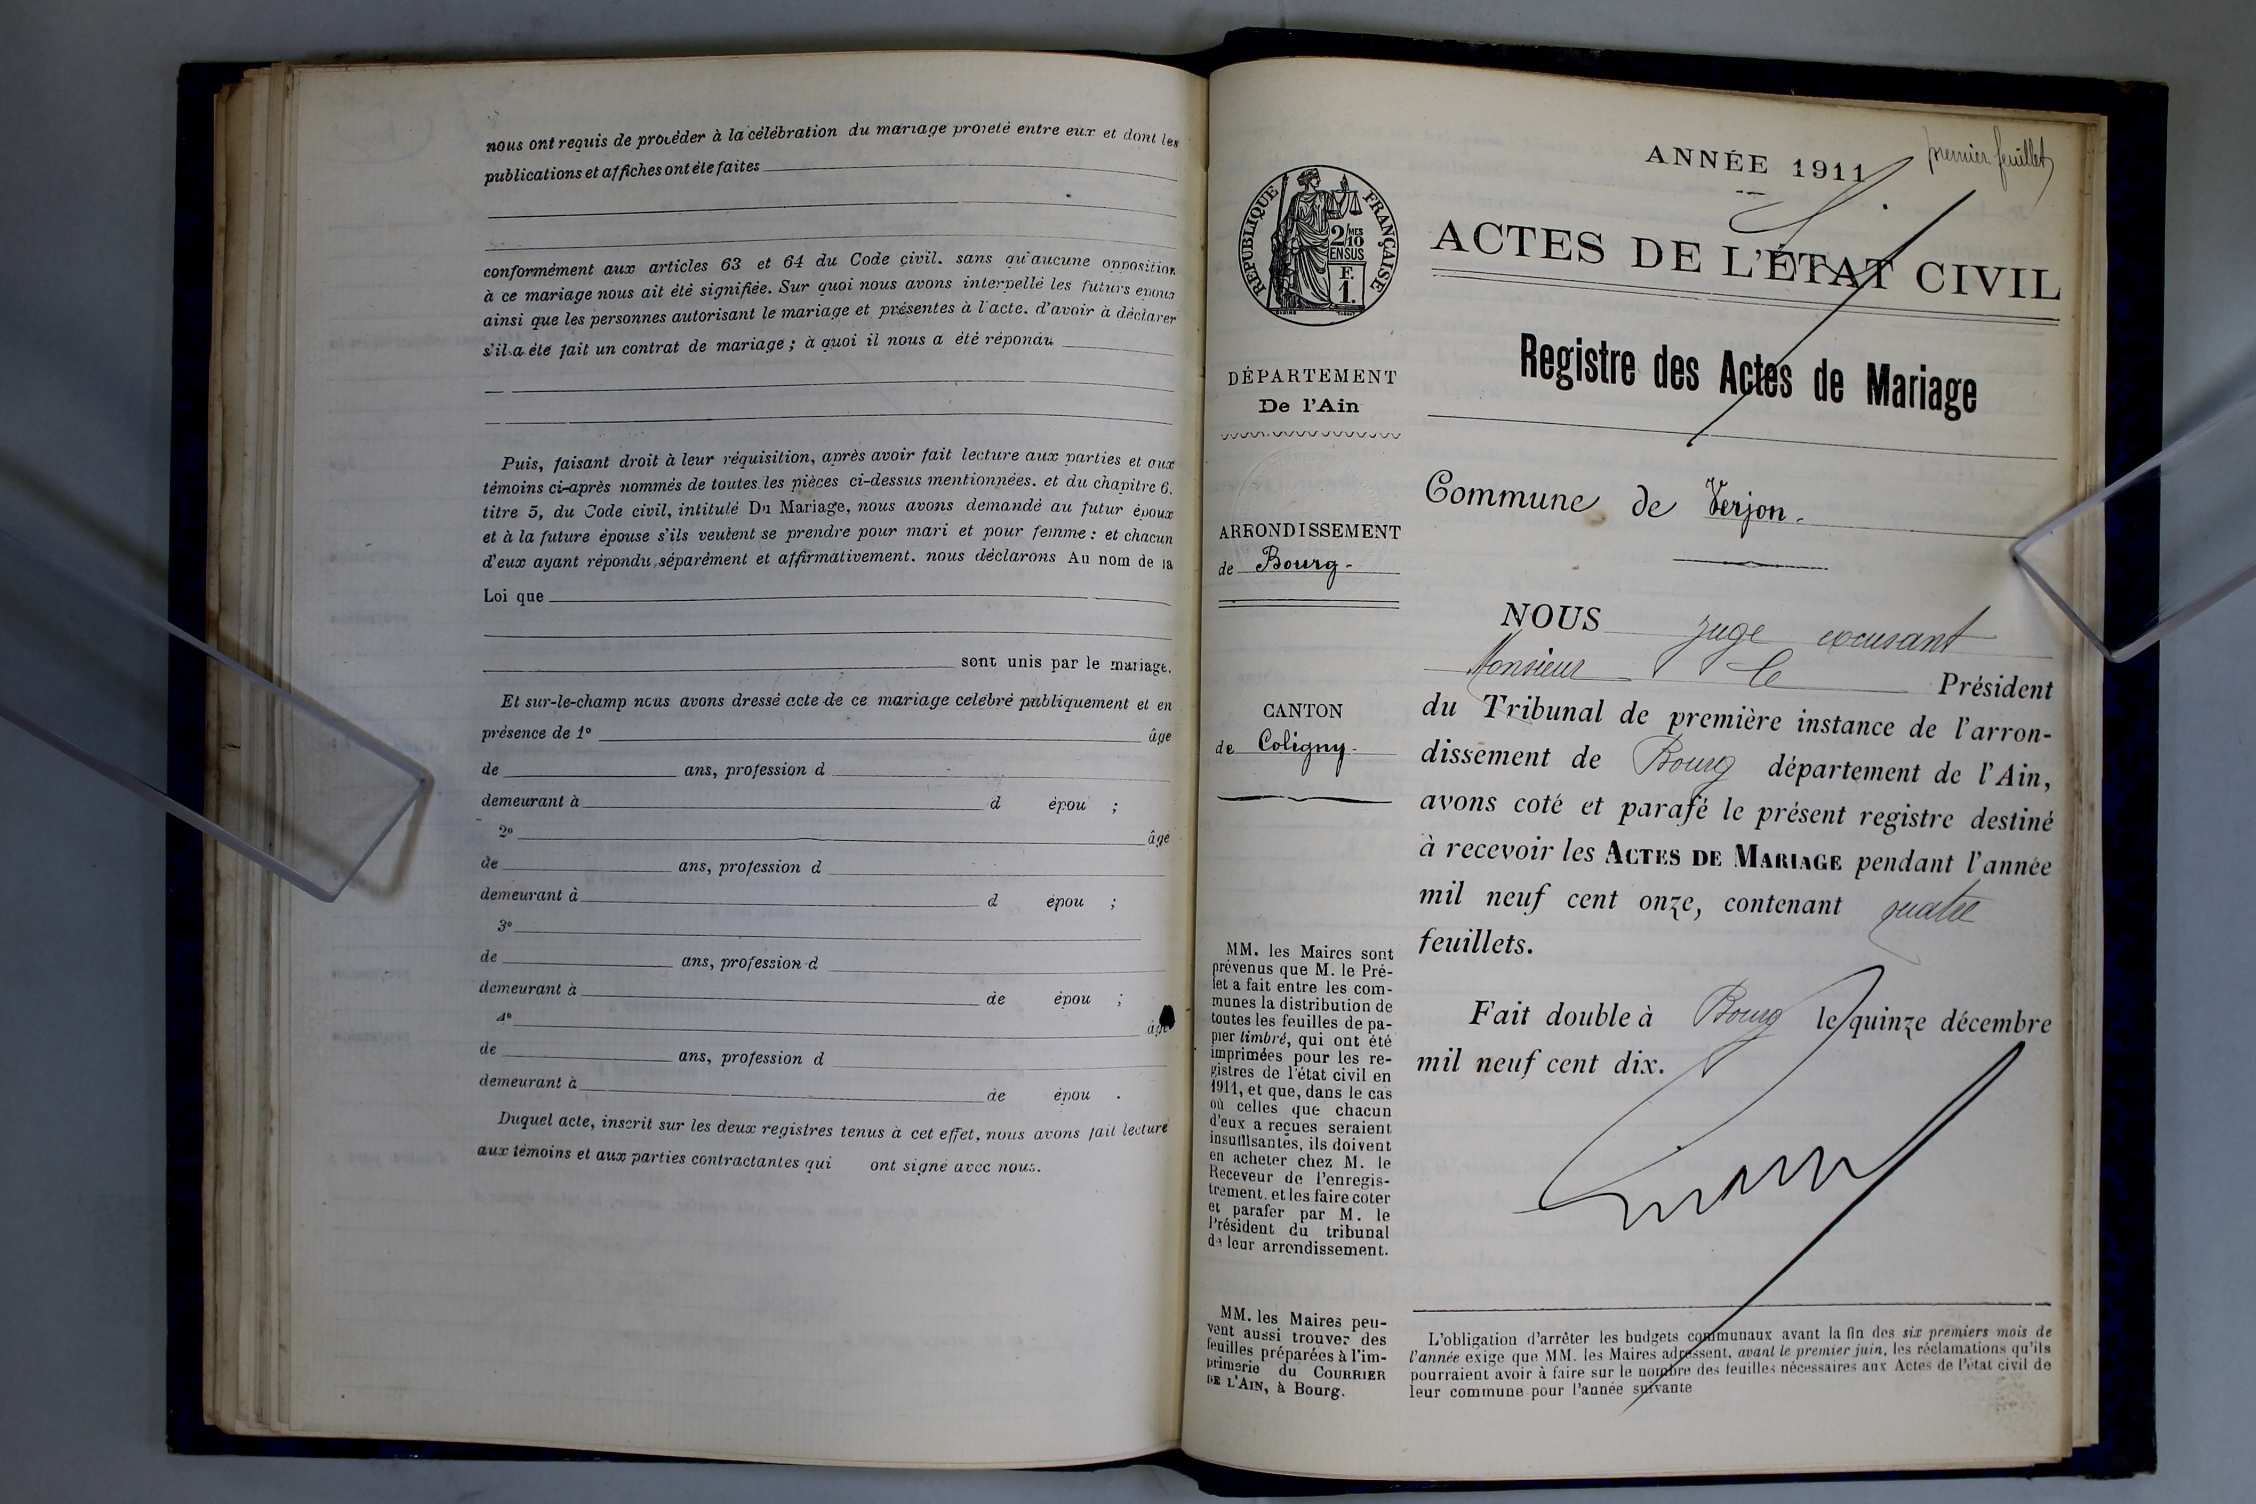 nous ont requis de procéder à la célébration du mariage projeté entre eux et dont les
publications et affiches ont été faites
conformément aux articles 63 et 64 du Code civil. sans qu'aucune opposition
à ce mariage nous ait été signifiée. Sur quoi nous avons interpellé les futurs époux
ainsi que les personnes autorisant le mariage et présentes à l'acte. d'avoir à déclarer
s'il a été fait un contrat de mariage ; à quoi il nous a été répondu
Puis, faisant droit à leur réquisition, après avoir fait lecture aux parties et aux
témoins ci-après nommés de toutes les pièces ci-dessus mentionnées. et du chapitre 6.
titre 5, du Code civil, intitulé Du Mariage, nous avons demandé au futur époux
et à la future épouse s'ils veulent se prendre pour mari et pour femme : et chacun
d'eux ayant répondu séparément et affirmativement. nous déclarons Au nom de la
Loi que
sont unis par le mariage.
Et sur-le-champ nous avons dressé acte de ce mariage célébré publiquement et en
présence de 1° âgé
de ans, profession d
demeurant à d épou ;
2° âgé
de ans, profession d
demeurant à d épou ;
3°
de ans, profession d
demeurant à de épou ;
4° âgé
de ans, profession d
demeurant à de épou .
Duquel acte, inscrit sur les deux registres tenus à cet effet, nous avons fait lecture
aux témoins et aux parties contractantes qui ont signé avec nous.
premier feuillet
ANNÉE 1911
RÉPUBLIQUE FRANÇAISE
2/10 MES
EN SUS
F.
1.
ACTES DE L'ÉTAT CIVIL
Registre des Actes de Mariage
DÉPARTEMENT
De l'Ain
ARRONDISSEMENT
de Bourg -
CANTON
de Coligny -
MM. les Maires sont
prévenus que M. le Pré-
fet a fait entre les com-
munes la distribution de
toutes les feuilles de pa-
pier timbré, qui ont été
imprimées pour les re-
gistres de l'état civil en
1911, et que, dans le cas
où celles que chacun
d'eux a reçues seraient
insuffisantes, ils doivent
en acheter chez M. le
Receveur de l'enregis-
trement. et les faire coter
et parafer par M. le
Président du tribunal
de leur arrondissement.
MM. les Maires peu-
vent aussi trouver des
feuilles préparées à l'im-
primerie du COURRIER
DE L'AIN, à Bourg.
Commune de Verjon -
NOUS juge excusant
Monsieur le Président
du Tribunal de première instance de l'arron-
dissement de Bourg département de l'Ain,
avons coté et parafé le présent registre destiné
à recevoir les ACTES DE MARIAGE pendant l'année
mil neuf cent onze, contenant quatre
feuillets.
Fait double à Bourg le quinze décembre
mil neuf cent dix.
L'obligation d'arrêter les budgets communaux avant la fin des six premiers mois de
l'année exige que MM. les Maires adressent, avant le premier juin, les réclamations qu'ils
pourraient avoir à faire sur le nombre des feuilles nécessaires aux Actes de l'état civil de
leur commune pour l'année suivante